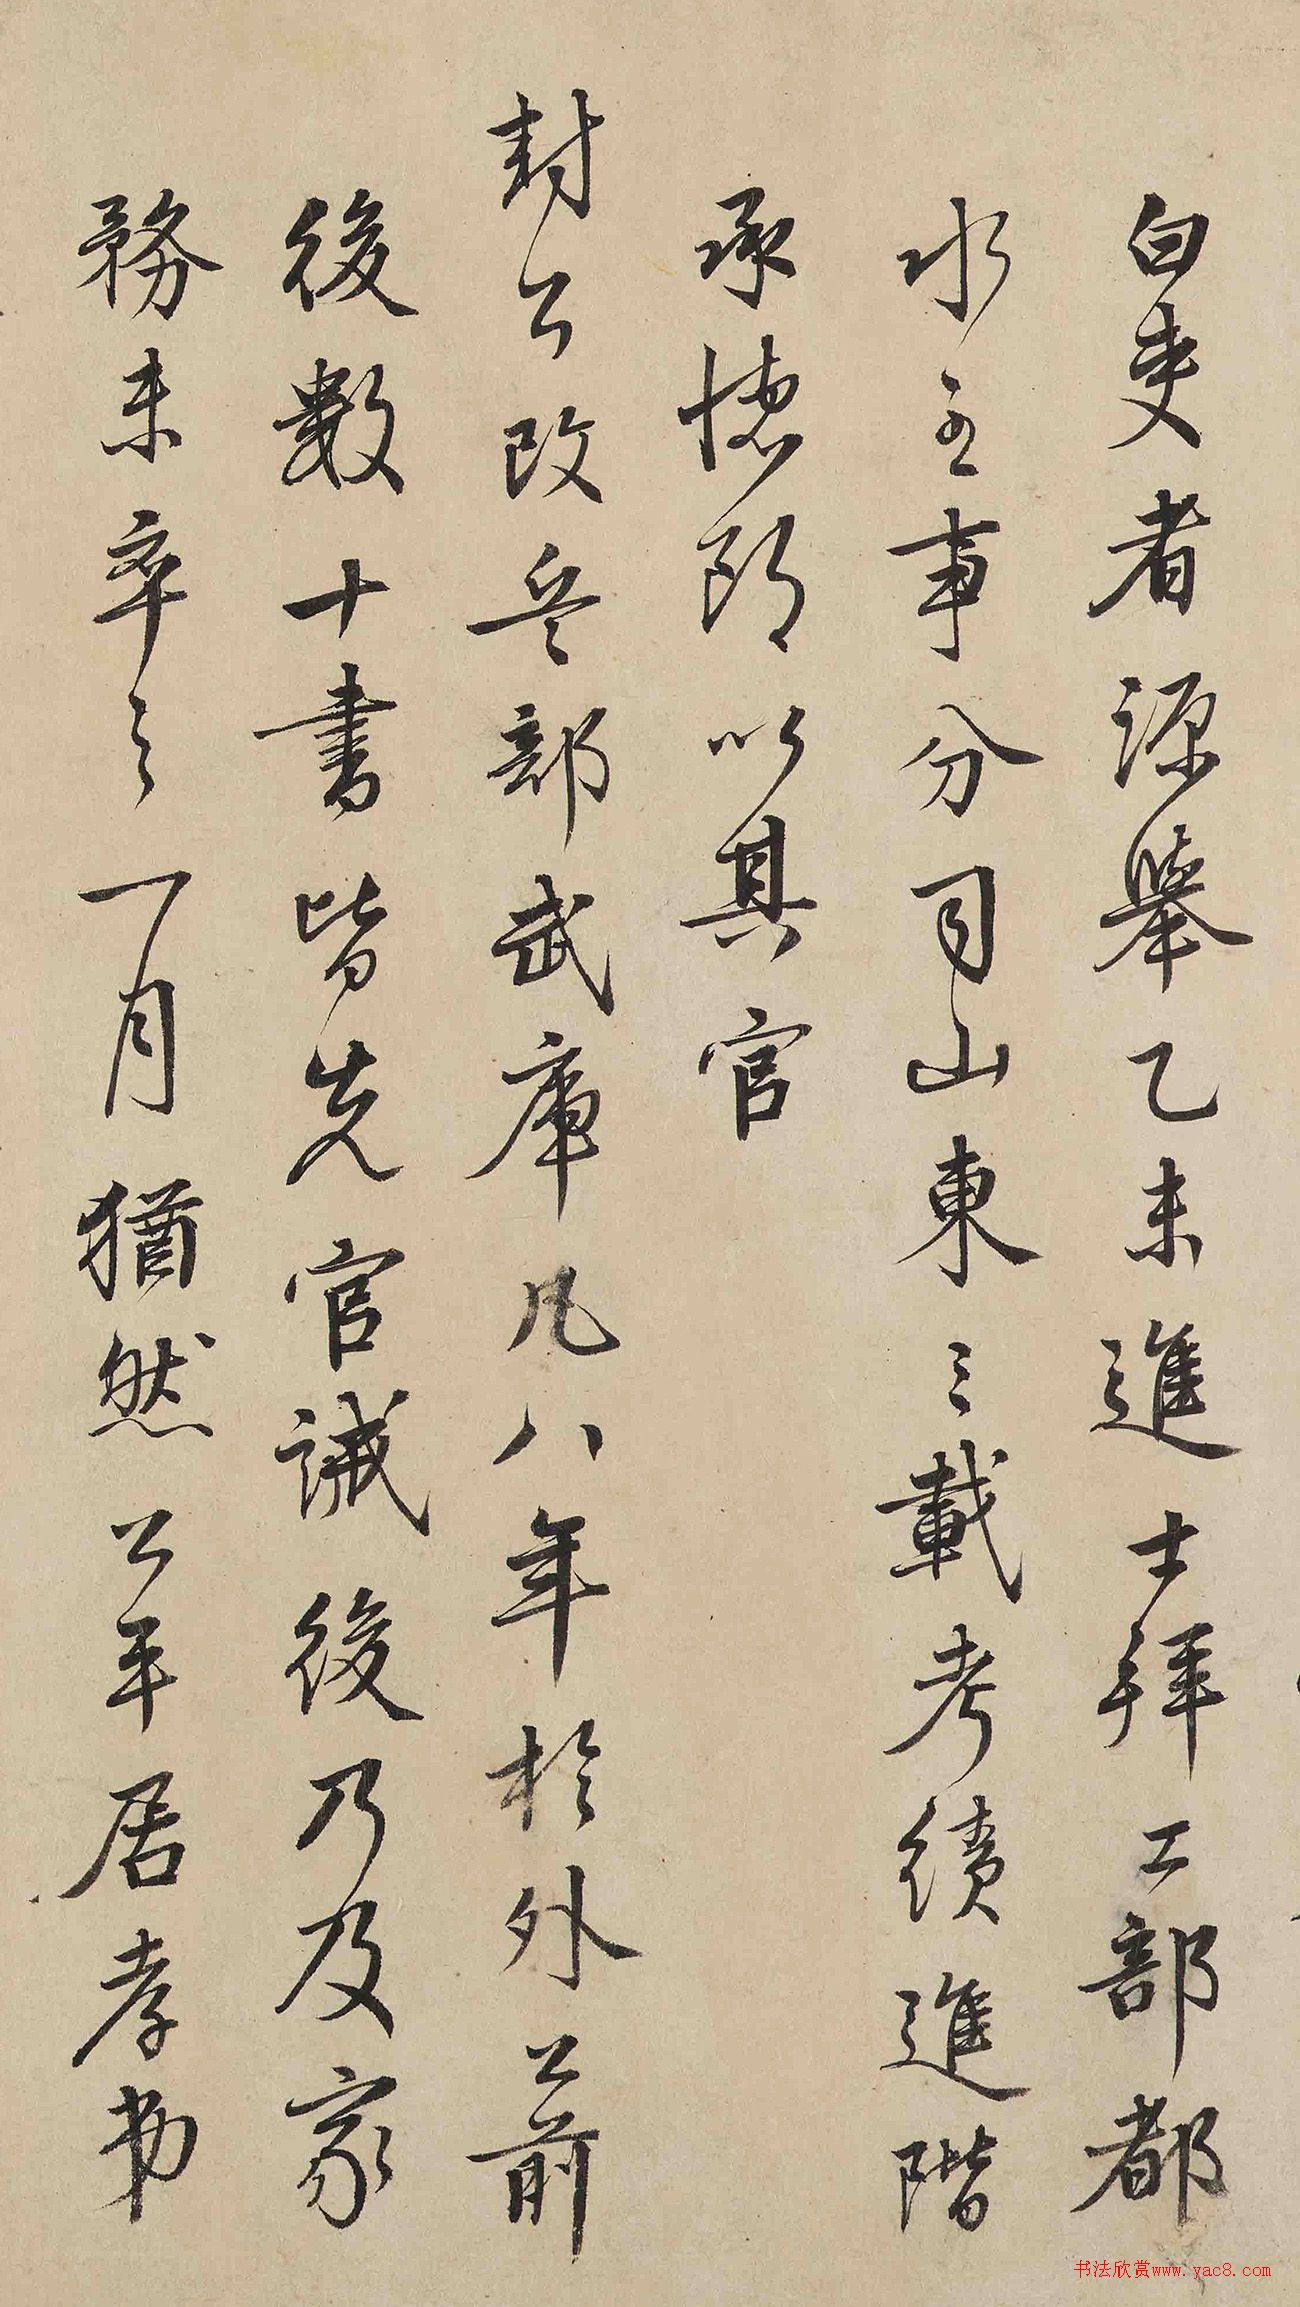 白叟者源舉乙未進士拜工部都
水主事分司山東三載考績進階
承德郎以其官
封公改兵部武庫凡八年於外公前
後數十書皆先官誡後乃及家
務未卒之一月猶然公平居孝弟
书法欣赏www.yac8.com